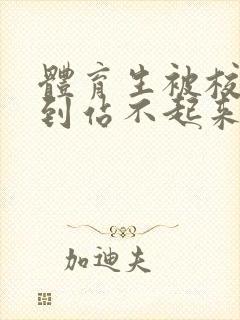 體育生被校
到佔不起来
加迪夫